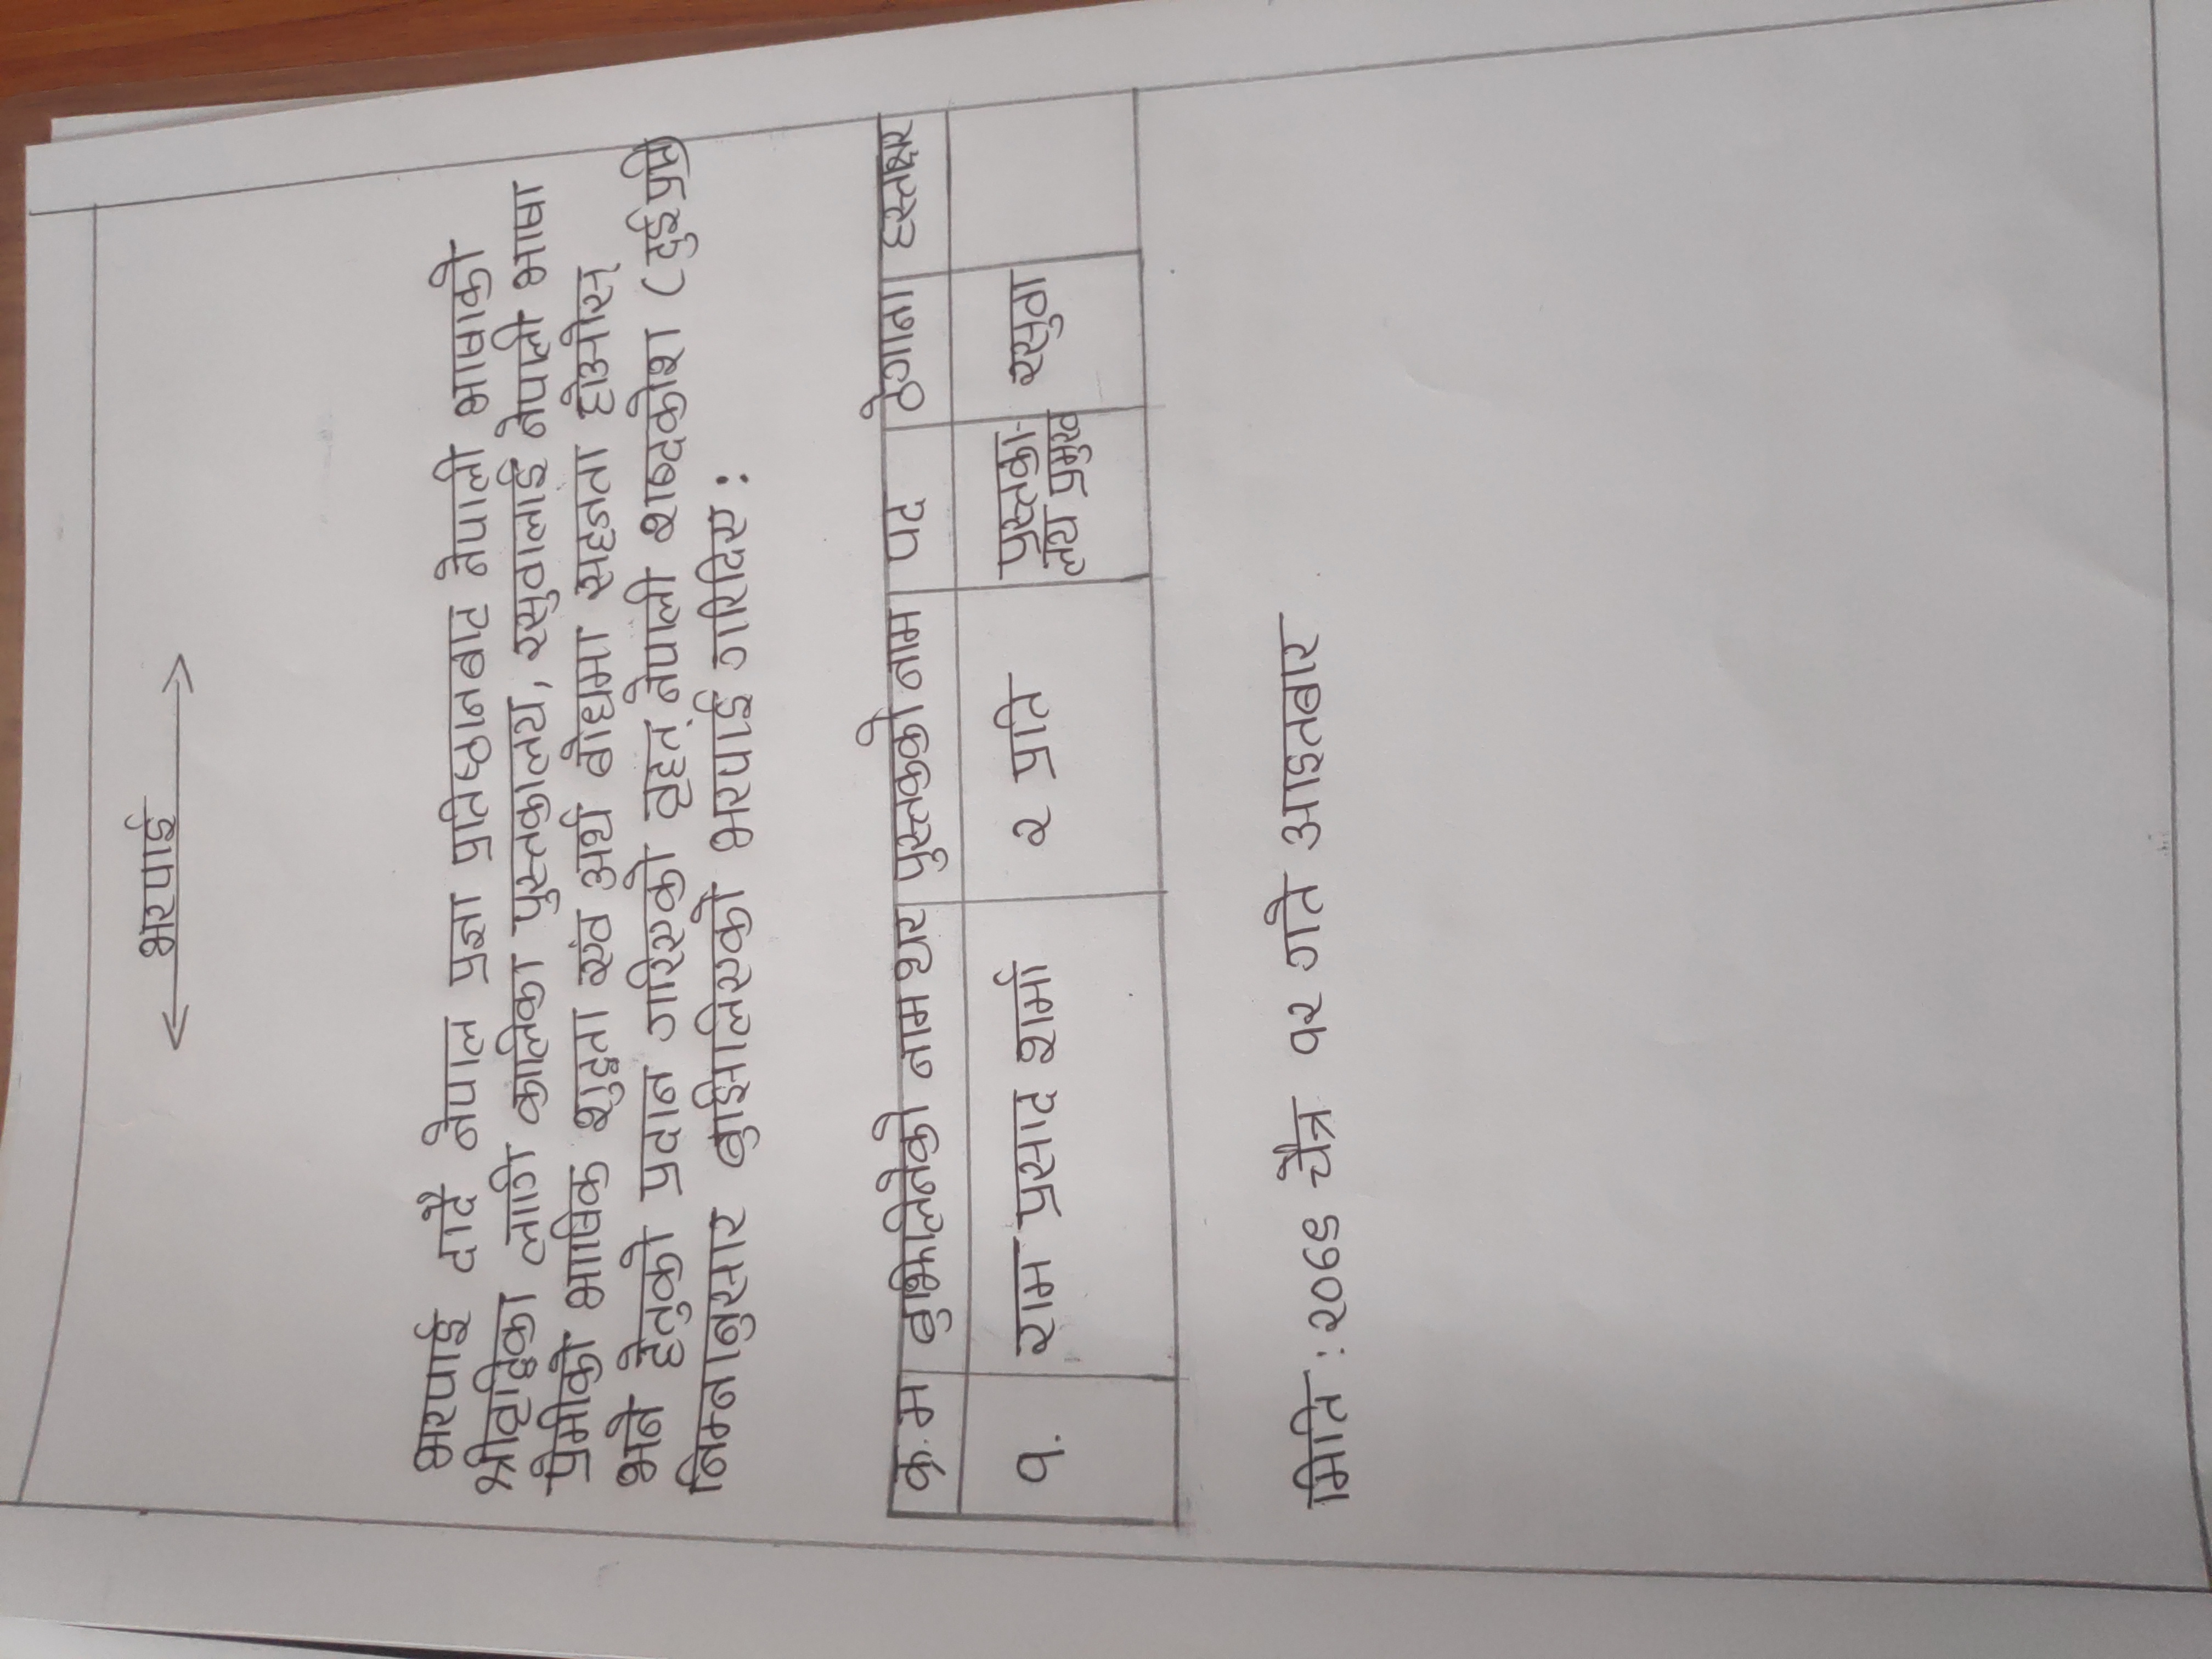 भरपाई
भरपाई दादै नेपाल प्रज्ञा प्रतिष्ठानबाट नेपाली भाषाको
श्रीवृद्धिका लागि कालिका पुस्तकालय, रसुवालाई नेपाली भाषा
प्रेमीको भाषिक शुद्धता एवं अर्थ बोधमा सहजता होओस्
भन्ने हेतुको प्रदान गरिएको वृहत् नेपाली शब्दकोश (दुई प्रति)
निम्नानुसार बुझिलिएको भरपाई गरिदिए :
क्र.म बुझिलिनेको नाम थर पुस्तकको नाम पद ठेगाना हस्ताक्षर
१. राम प्रसाद शर्मा २ प्रति पुस्तका- रसुवा
लय प्रमुख
मिति : २०७९ चैत्र १२ गते आइतबार